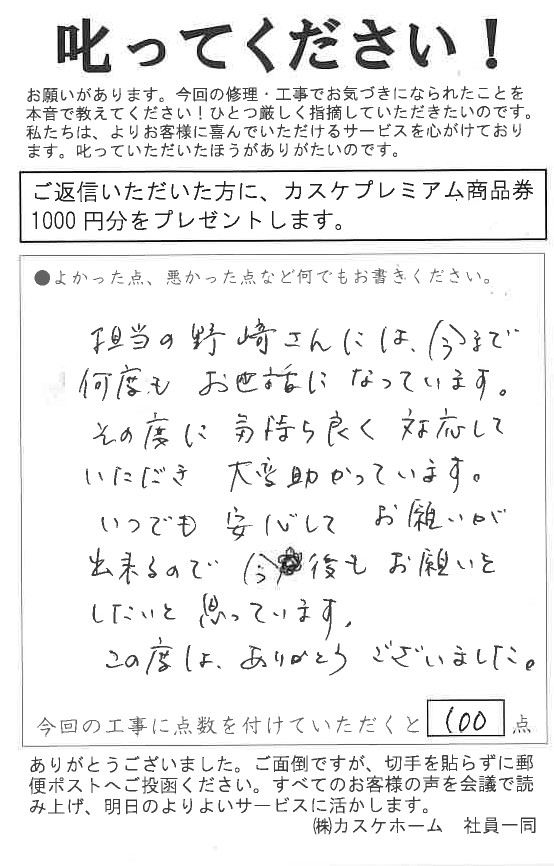 叱ってください!
お願いがあります。今回の修理・工事でお気づきになられたことを
本音で教えてください!ひとつ厳しく指摘していただきたいのです。
私たちは、よりお客様に喜んでいただけるサービスを心がけており
ます。叱っていただいたほうがありがたいのです。
ご返信いただいた方に、カスケプレミアム商品券
1000円分をプレゼントします。
●よかった点、悪かった点など何でもお書きください。
担当の野崎さんには、今まで
何度も お世話に なっています。
その度に 気持ち良く 対応して
いただき 大変助かっています。
いつでも 安心して お願いが
出来るので 今後も お願いを
したいと 思っています。
この度は、ありがとう ございました。
今回の工事に点数を付けていただくと 100 点
ありがとうございました。ご面倒ですが、切手を貼らずに郵
便ポストへご投函ください。すべてのお客様の声を会議で読
み上げ、明日のよりよいサービスに活かします。
㈱カスケホーム 社員一同